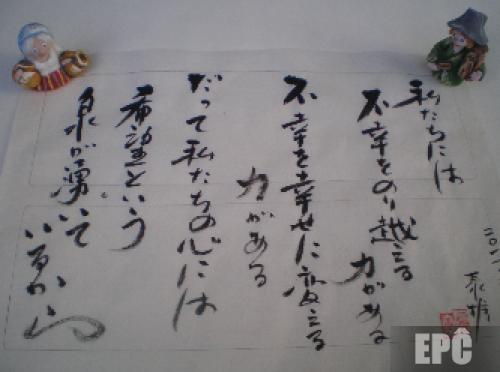 私たちには
不幸をのり越える
力がある
不幸を幸せに変える
力がある
だって私たちの心には
希望という
泉が湧いて
いるから
EPC